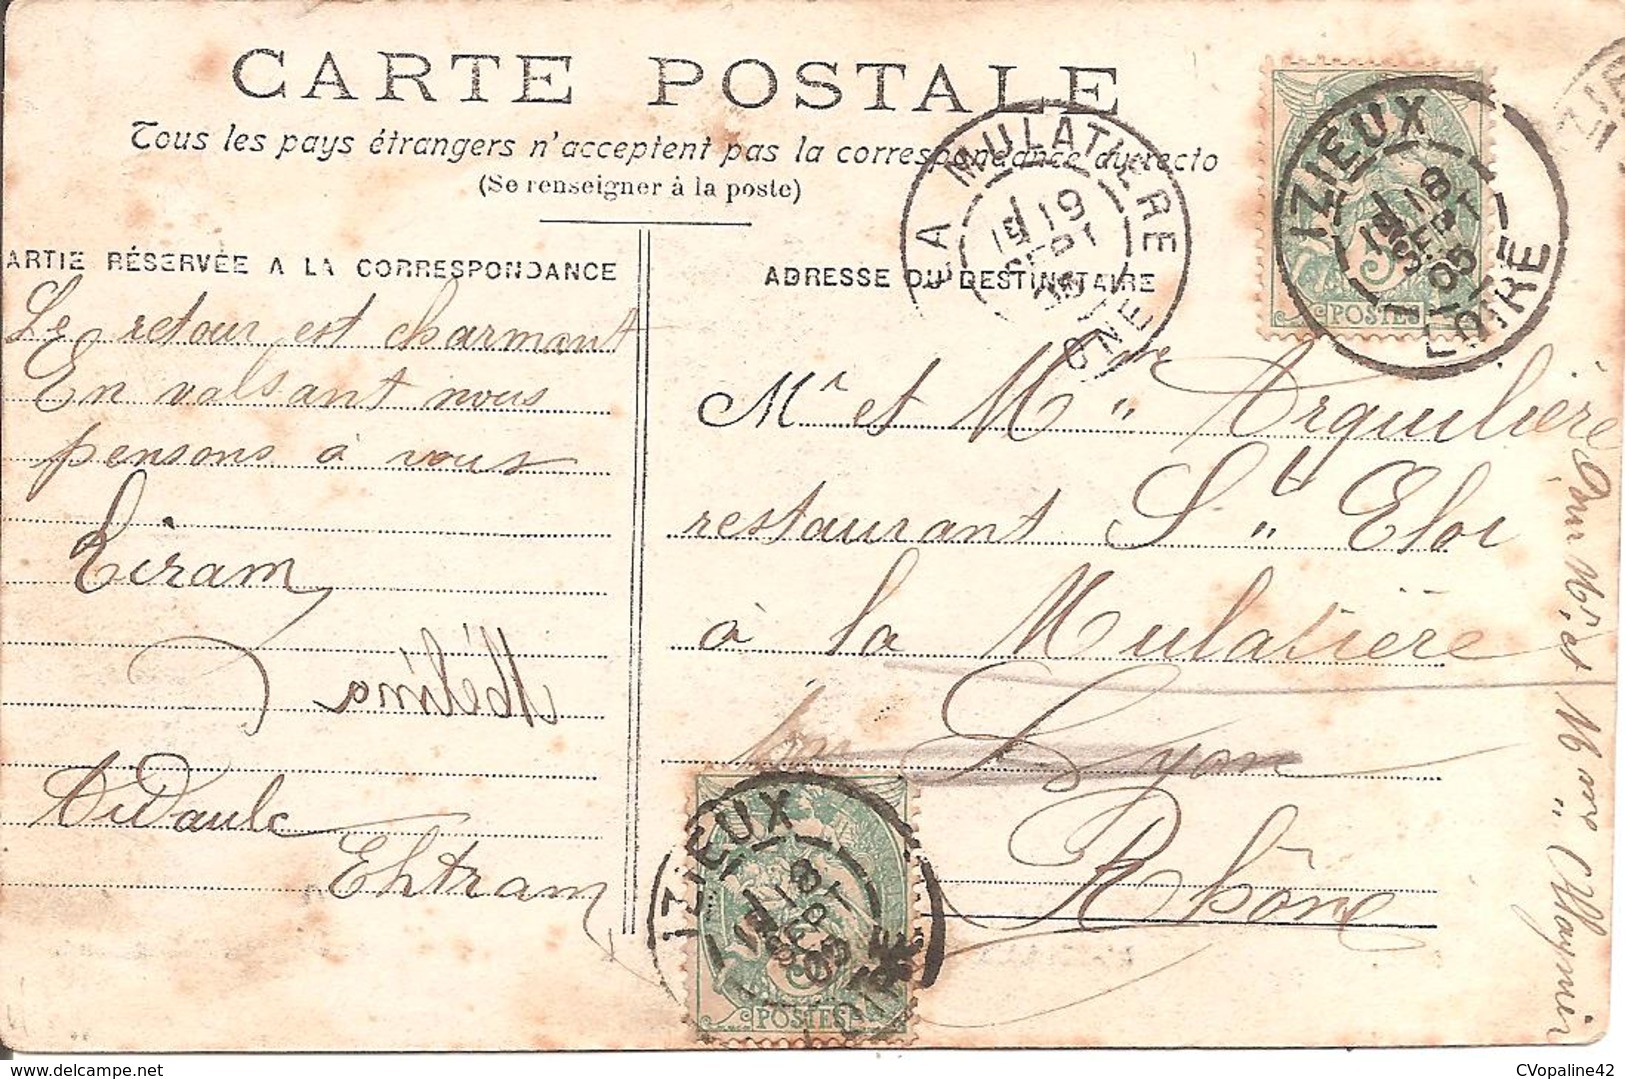 CARTE POSTALE
Tous les pays étrangers n'acceptent pas la correspondance au recto
(Se renseigner à la poste)
ARTIE RÉSERVÉE A LA CORRESPONDANCE
Le retour est charmant
En valsant nous
pensons à vous
Mélina
Ehtram
ADRESSE DU DESTINATAIRE
Mr et Mme Arquilière
restaurant St Eloi
à la Mulatière
Lyon
Rhône
Mr et Mme
LA MULATIERE
19
SEPT
05
IZIEUX
18
SEPT
05
LOIRE
5
POSTES
IZIEUX
18
SEPT
05
LOIRE
5
POSTES
CVopaline42